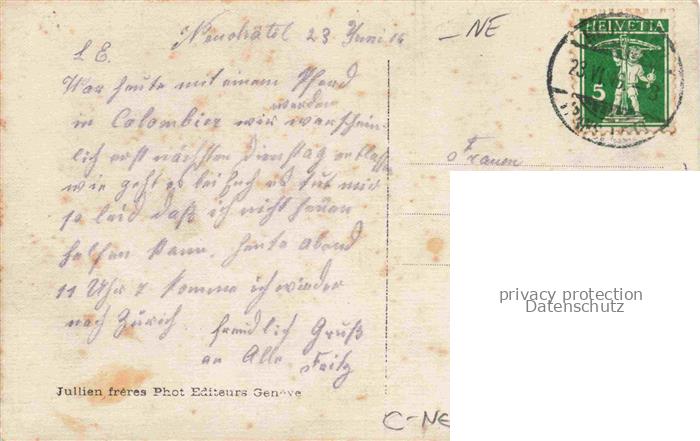 Neuchâtel 23 Juni 14
L E.
War heute mit einem Pferd
in Colombier wir werden warschein-
lich erst nächsten Dienstag entlassen
wie geht es bei Euch es tut mir
so leid daß ich nicht heuen
helfen kann. Heute Abend
11 Uhr komme ich wieder
nach Zürich. freundlich Gruß
an Alle Fritz
Jullien fréres Phot Editeurs Genève
NE
HELVETIA
5
23 VI
Frauen
privacy protection
Datenschutz
C-NE